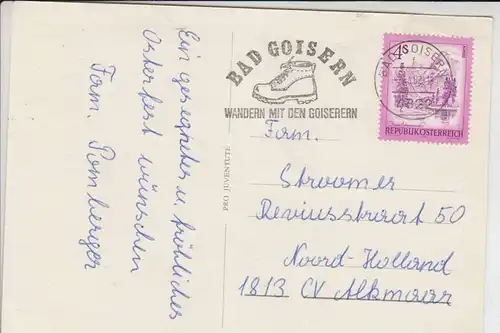 Ein gesegnetes u. fröhliches
Osterfest wünschen
Fam. Pomberger
PRO JUVENTUTE
BAD GOISERN
WANDERN MIT DEN GOISERERN
BAD GOISERN
4822
REPUBLIK ÖSTERREICH
Fam.
Stroomer
Reviusstraat 50
Noord-Holland
1813 CV Alkmaar